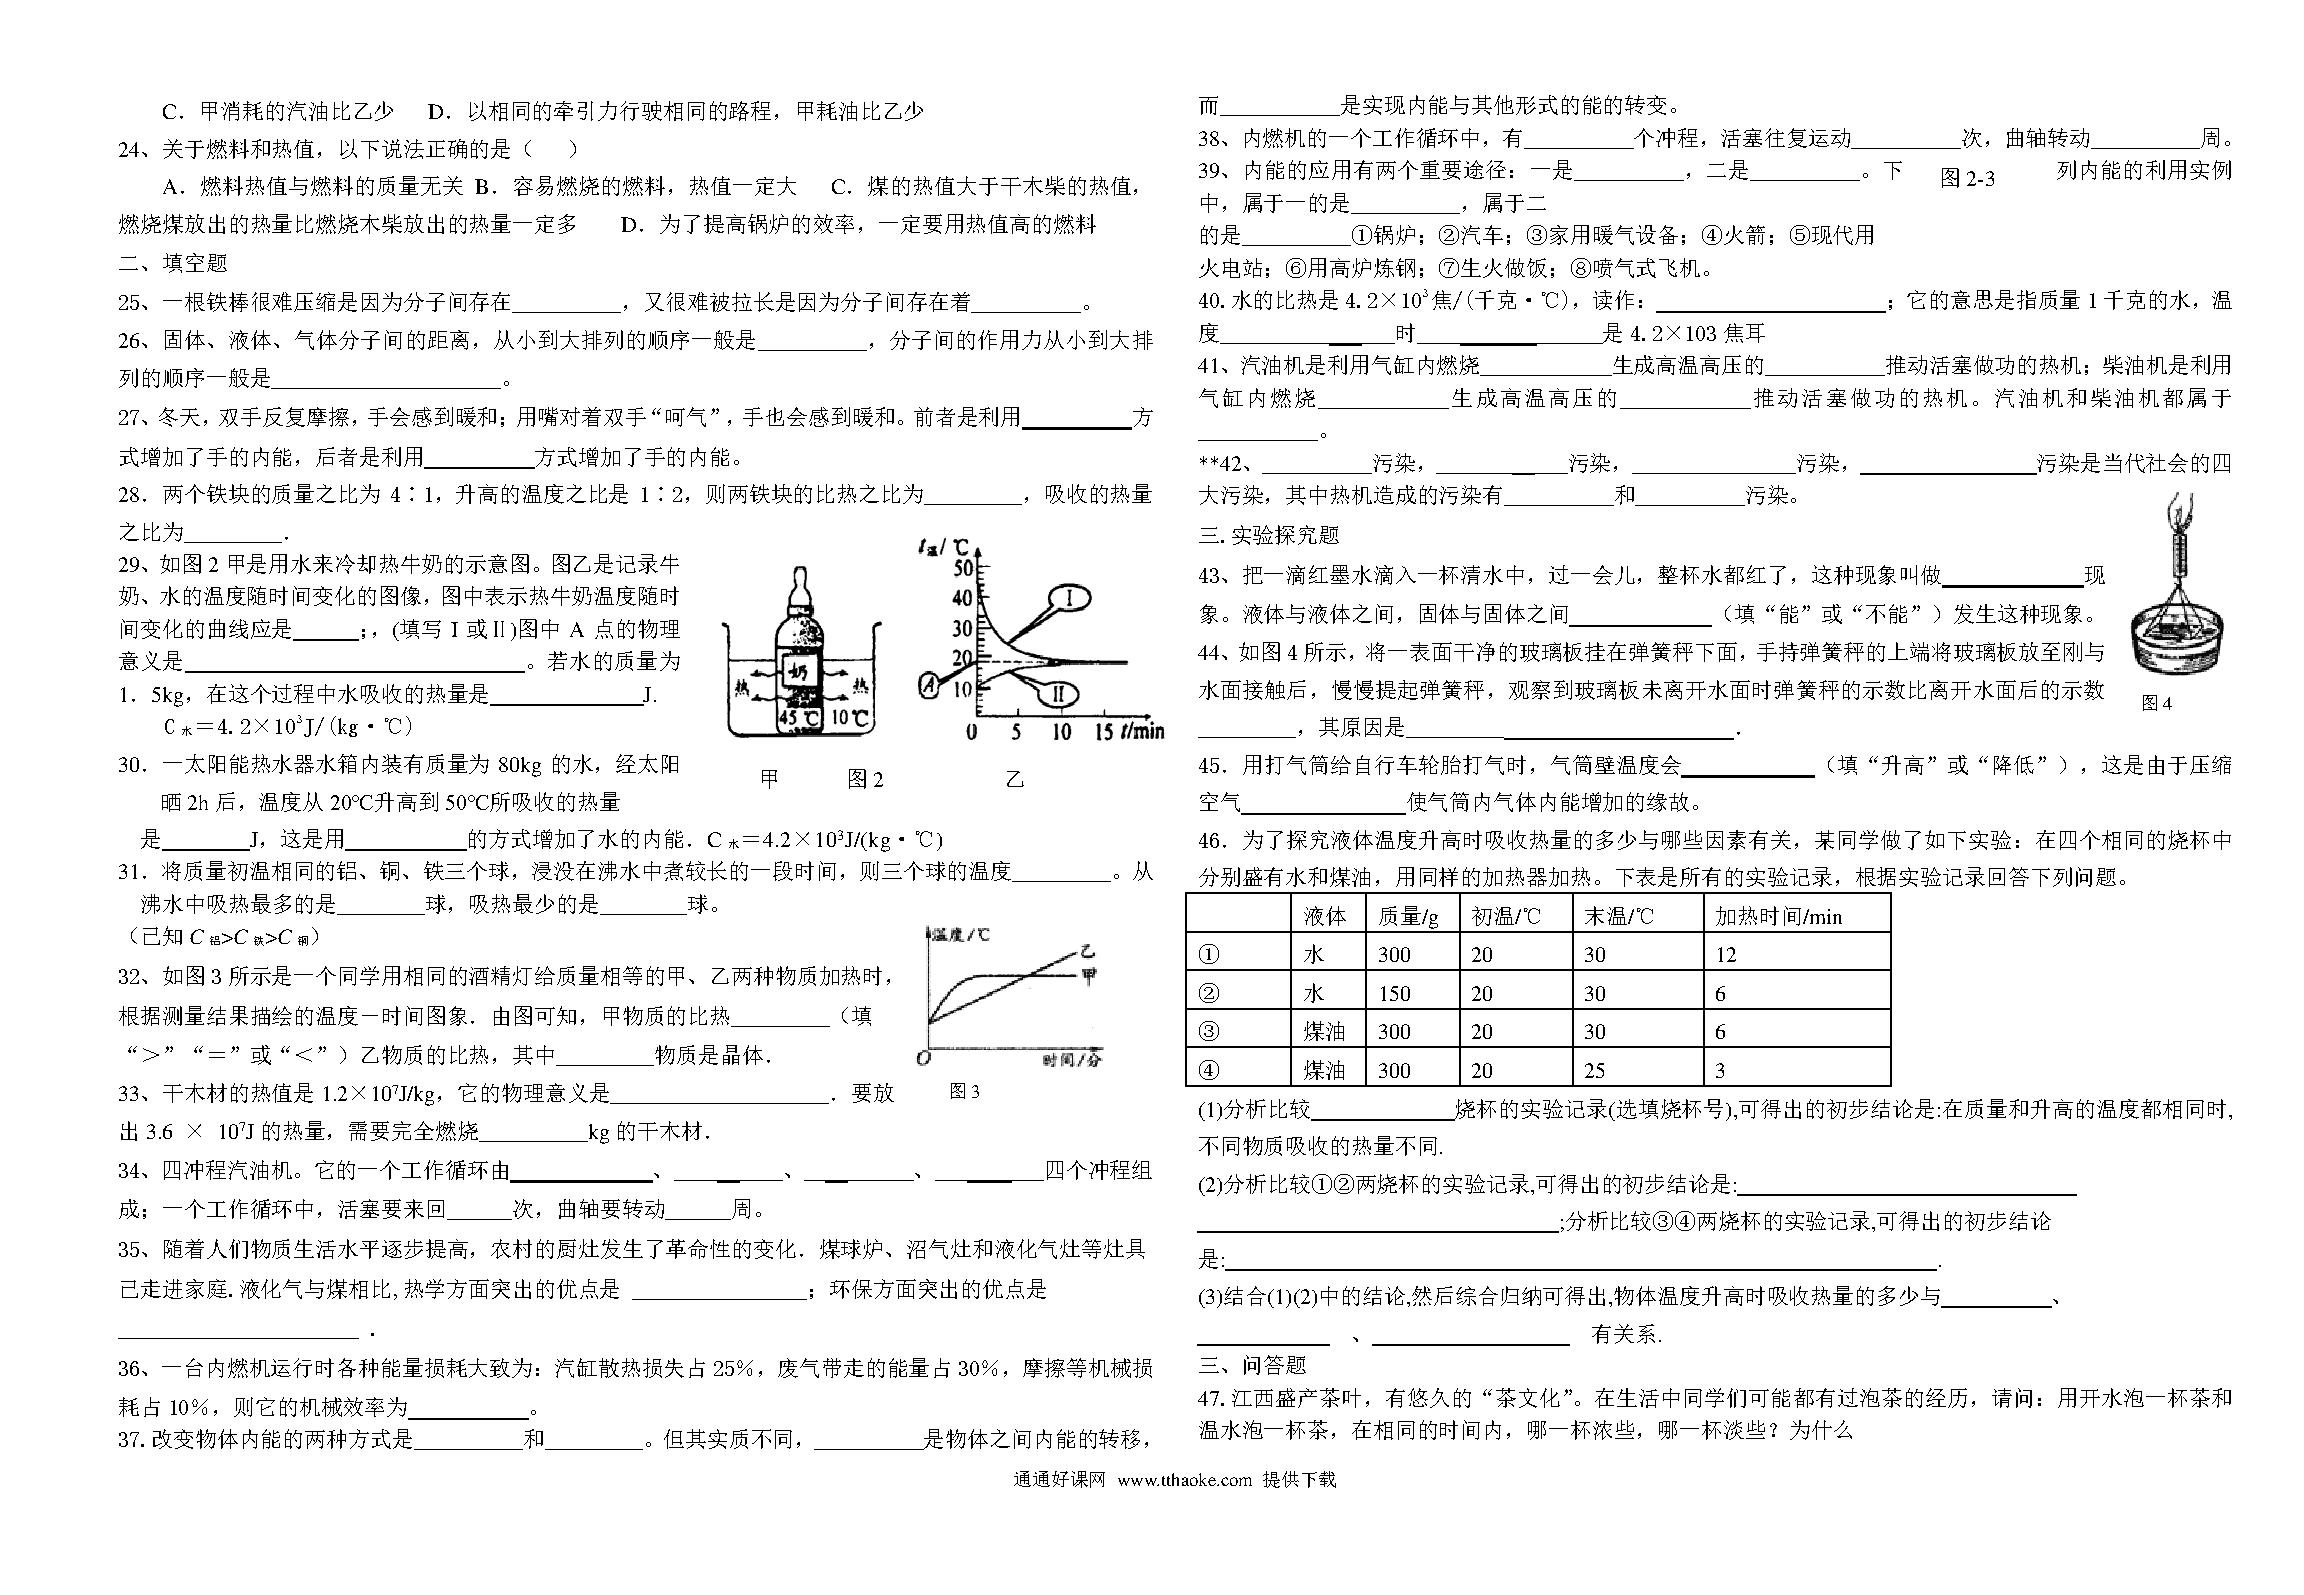 C．甲消耗的汽油比乙少 D．以相同的牵引力行驶相同的路程，甲耗油比乙少
24、关于燃料和热值，以下说法正确的是（ ）
A．燃料热值与燃料的质量无关 B．容易燃烧的燃料，热值一定大 C．煤的热值大于干木柴的热值，
燃烧煤放出的热量比燃烧木柴放出的热量一定多 D．为了提高锅炉的效率，一定要用热值高的燃料
二、填空题
25、一根铁棒很难压缩是因为分子间存在__________，又很难被拉长是因为分子间存在着__________。
26、固体、液体、气体分子间的距离，从小到大排列的顺序一般是__________，分子间的作用力从小到大排
列的顺序一般是_____________________。
27、冬天，双手反复摩擦，手会感到暖和；用嘴对着双手“呵气”，手也会感到暖和。前者是利用__________方
式增加了手的内能，后者是利用__________方式增加了手的内能。
28．两个铁块的质量之比为 4∶1，升高的温度之比是 1∶2，则两铁块的比热之比为_________，吸收的热量
之比为_________．
29、如图 2 甲是用水来冷却热牛奶的示意图。图乙是记录牛
奶、水的温度随时间变化的图像，图中表示热牛奶温度随时
间变化的曲线应是______；，(填写Ⅰ或Ⅱ)图中 A 点的物理
意义是_______________________________。若水的质量为
1．5kg，在这个过程中水吸收的热量是______________J.
C 水＝4.2×10³J/(kg·℃)
奶
热
热
45℃
10℃
甲 图 2 乙
t温/℃
50
40
30
20
10
0 5 10 15 t/min
Ⅰ
Ⅱ
A
30．一太阳能热水器水箱内装有质量为 80kg 的水，经太阳
晒 2h 后，温度从 20℃升高到 50℃所吸收的热量
是________J，这是用___________的方式增加了水的内能．C 水＝4.2×10³J/(kg·℃)
31．将质量初温相同的铝、铜、铁三个球，浸没在沸水中煮较长的一段时间，则三个球的温度_________。从
沸水中吸热最多的是________球，吸热最少的是________球。
（已知 C 铝>C 铁>C 铜）
32、如图 3 所示是一个同学用相同的酒精灯给质量相等的甲、乙两种物质加热时，
根据测量结果描绘的温度－时间图象．由图可知，甲物质的比热_________（填
“＞”“＝”或“＜”）乙物质的比热，其中_________物质是晶体．
温度/℃
乙
甲
O
时间/分
图 3
33、干木材的热值是 1.2×10⁷J/kg，它的物理意义是____________________．要放
出 3.6 × 10⁷J 的热量，需要完全燃烧__________kg 的干木材．
34、四冲程汽油机。它的一个工作循环由_____________、__________、__________、__________四个冲程组
成；一个工作循环中，活塞要来回______次，曲轴要转动______周。
35、随着人们物质生活水平逐步提高，农村的厨灶发生了革命性的变化．煤球炉、沼气灶和液化气灶等灶具
已走进家庭.液化气与煤相比,热学方面突出的优点是 ________________；环保方面突出的优点是
______________________ ．
36、一台内燃机运行时各种能量损耗大致为：汽缸散热损失占 25％，废气带走的能量占 30％，摩擦等机械损
耗占 10％，则它的机械效率为___________。
37.改变物体内能的两种方式是__________和_________。但其实质不同，__________是物体之间内能的转移，
而___________是实现内能与其他形式的能的转变。
38、内燃机的一个工作循环中，有__________个冲程，活塞往复运动__________次，曲轴转动__________周。
39、内能的应用有两个重要途径：一是__________，二是__________。下 图 2-3 列内能的利用实例
中，属于一的是__________，属于二
的是__________①锅炉；②汽车；③家用暖气设备；④火箭；⑤现代用
火电站；⑥用高炉炼钢；⑦生火做饭；⑧喷气式飞机。
40.水的比热是 4.2×10³焦/(千克·℃)，读作：_____________________；它的意思是指质量 1 千克的水，温
度________________时_________________是 4.2×103 焦耳
41、汽油机是利用气缸内燃烧____________生成高温高压的___________推动活塞做功的热机；柴油机是利用
气缸内燃烧____________生成高温高压的____________推动活塞做功的热机。汽油机和柴油机都属于
___________。
**42、__________污染，____________污染，_______________污染，________________污染是当代社会的四
大污染，其中热机造成的污染有__________和__________污染。
三.实验探究题
43、把一滴红墨水滴入一杯清水中，过一会儿，整杯水都红了，这种现象叫做_____________现
象。液体与液体之间，固体与固体之间_____________（填“能”或“不能”）发生这种现象。
44、如图 4 所示，将一表面干净的玻璃板挂在弹簧秤下面，手持弹簧秤的上端将玻璃板放至刚与
水面接触后，慢慢提起弹簧秤，观察到玻璃板未离开水面时弹簧秤的示数比离开水面后的示数
_________，其原因是______________________________．
图 4
45．用打气筒给自行车轮胎打气时，气筒壁温度会____________（填“升高”或“降低”），这是由于压缩
空气_______________使气筒内气体内能增加的缘故。
46．为了探究液体温度升高时吸收热量的多少与哪些因素有关，某同学做了如下实验：在四个相同的烧杯中
分别盛有水和煤油，用同样的加热器加热。下表是所有的实验记录，根据实验记录回答下列问题。
液体 质量/g 初温/℃ 末温/℃ 加热时间/min
① 水 300 20 30 12
② 水 150 20 30 6
③ 煤油 300 20 30 6
④ 煤油 300 20 25 3
(1)分析比较_____________烧杯的实验记录(选填烧杯号),可得出的初步结论是:在质量和升高的温度都相同时,
不同物质吸收的热量不同.
(2)分析比较①②两烧杯的实验记录,可得出的初步结论是:_______________________________
_________________________________;分析比较③④两烧杯的实验记录,可得出的初步结论
是:_________________________________________________________________.
(3)结合(1)(2)中的结论,然后综合归纳可得出,物体温度升高时吸收热量的多少与__________、
____________ 、__________________ 有关系.
三、问答题
47.江西盛产茶叶，有悠久的“茶文化”。在生活中同学们可能都有过泡茶的经历，请问：用开水泡一杯茶和
温水泡一杯茶，在相同的时间内，哪一杯浓些，哪一杯淡些？为什么
通通好课网 www.tthaoke.com 提供下载